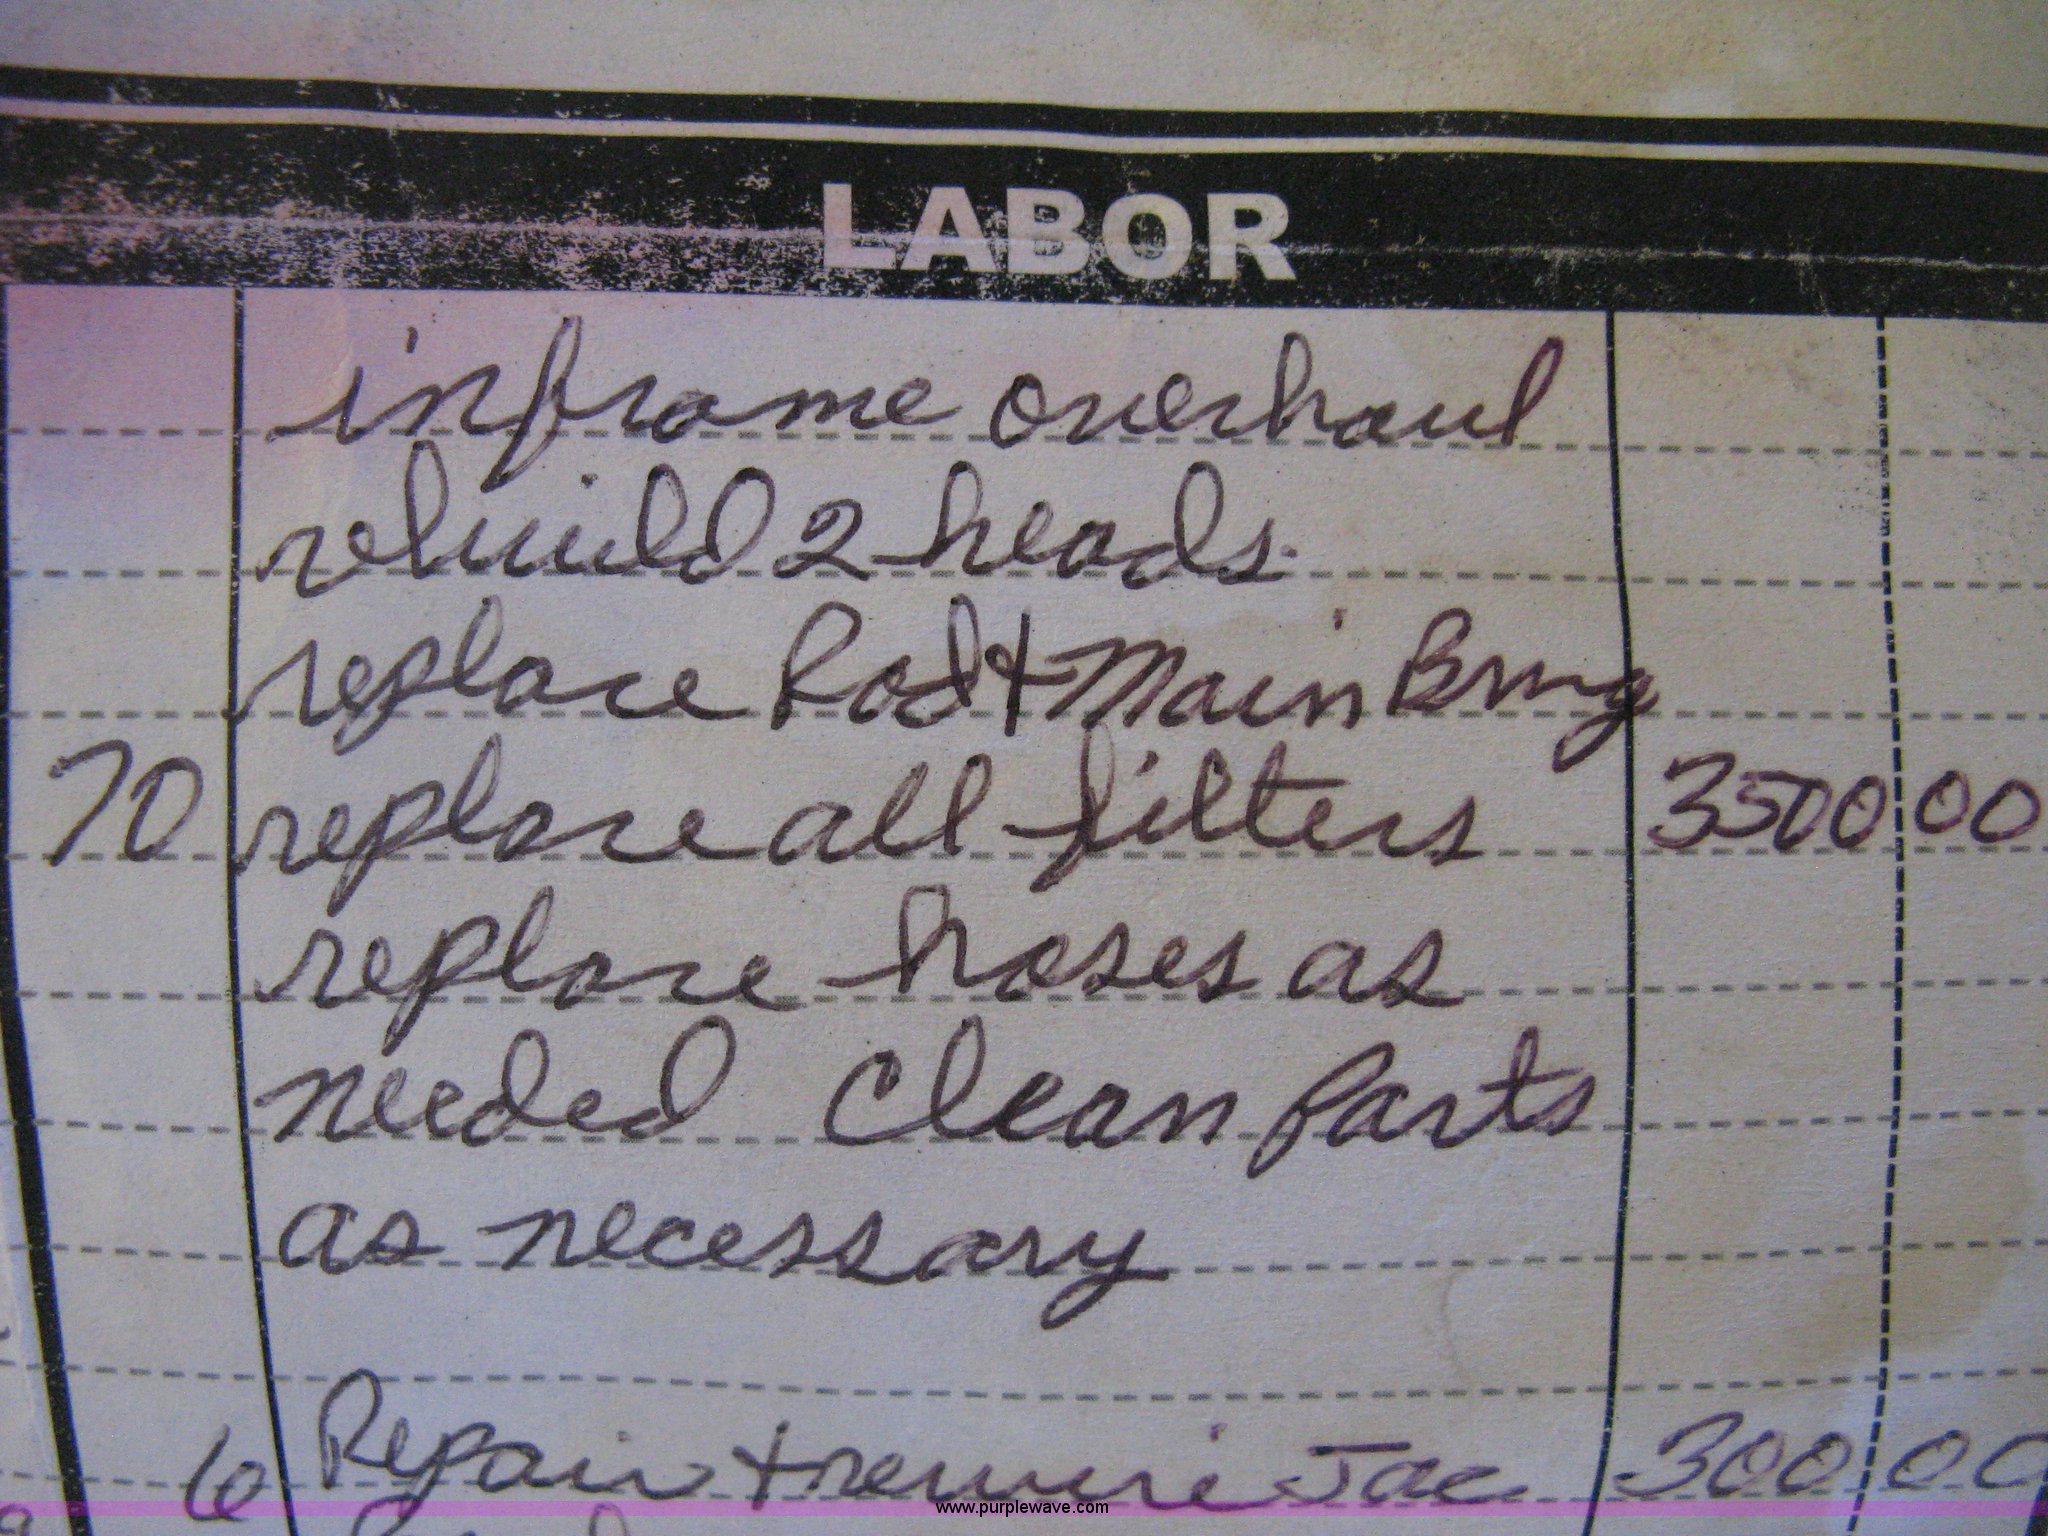 LABOR
inframe overhaul
rebuild 2 heads.
replace Rod + Main Brng
70 replace all filters 3500 00
replace hoses as
needed Clean Parts
as necessary
6 Repair + rewire Jac 300 00
www.purplewave.com